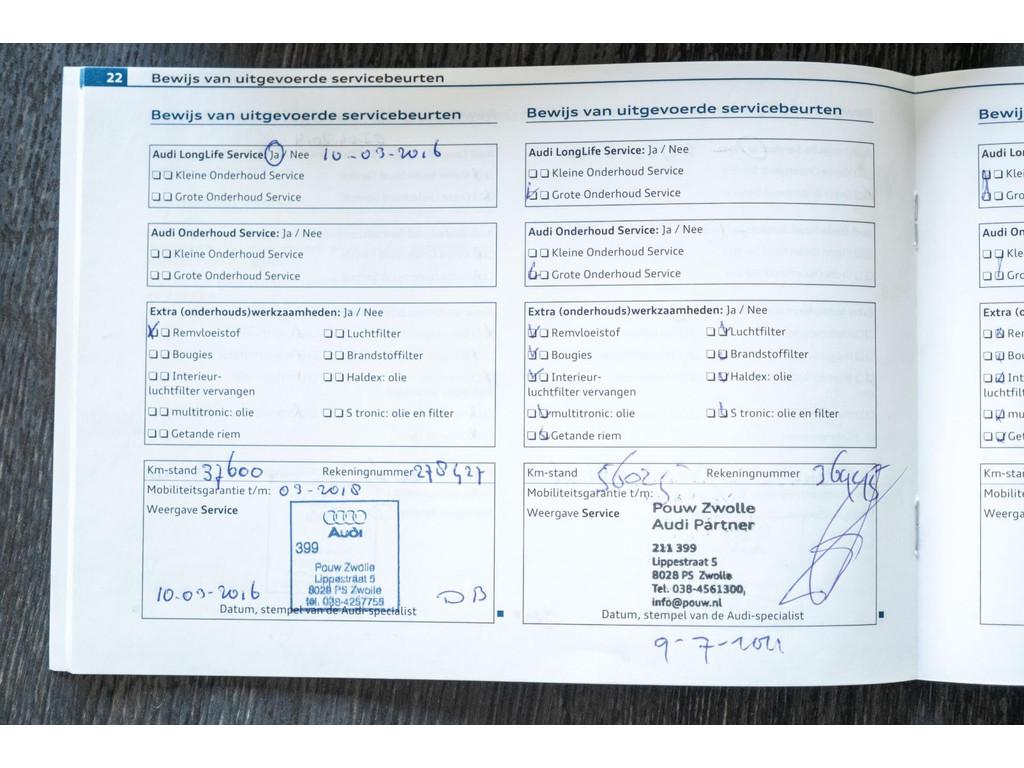 22 Bewijs van uitgevoerde servicebeurten
Bewijs van uitgevoerde servicebeurten
Audi LongLife Service: Ja / Nee 10-03-2016
Kleine Onderhoud Service
Grote Onderhoud Service
Audi Onderhoud Service: Ja / Nee
Kleine Onderhoud Service
Grote Onderhoud Service
Extra (onderhouds)werkzaamheden: Ja / Nee
Remvloeistof Luchtfilter
Bougies Brandstoffilter
Interieur- Haldex: olie
luchtfilter vervangen
multitronic: olie S tronic: olie en filter
Getande riem
Km-stand 37600 Rekeningnummer 278427
Mobiliteitsgarantie t/m: 03-2018
Weergave Service
Audi
399
Pouw Zwolle
Lippestraat 5
8028 PS Zwolle
tel. 038-4257755
10-03-2016 DB
Datum, stempel van de Audi-specialist
Bewijs van uitgevoerde servicebeurten
Audi LongLife Service: Ja / Nee
Kleine Onderhoud Service
Grote Onderhoud Service
Audi Onderhoud Service: Ja / Nee
Kleine Onderhoud Service
Grote Onderhoud Service
Extra (onderhouds)werkzaamheden: Ja / Nee
Remvloeistof Luchtfilter
Bougies Brandstoffilter
Interieur- Haldex: olie
luchtfilter vervangen
multitronic: olie S tronic: olie en filter
Getande riem
Km-stand Rekeningnummer
Mobiliteitsgarantie t/m:
Weergave Service
Pouw Zwolle
Audi Partner
211 399
Lippestraat 5
8028 PS Zwolle
Tel. 038-4561300,
info@pouw.nl
Datum, stempel van de Audi-specialist
9-7-2021
Bewij
Audi Lo
Kle
Gro
Audi On
Kle
Gro
Extra (o
Re
Bo
Int
luchtfilt
mu
Get
Km-sta
Mobilit
Weerga